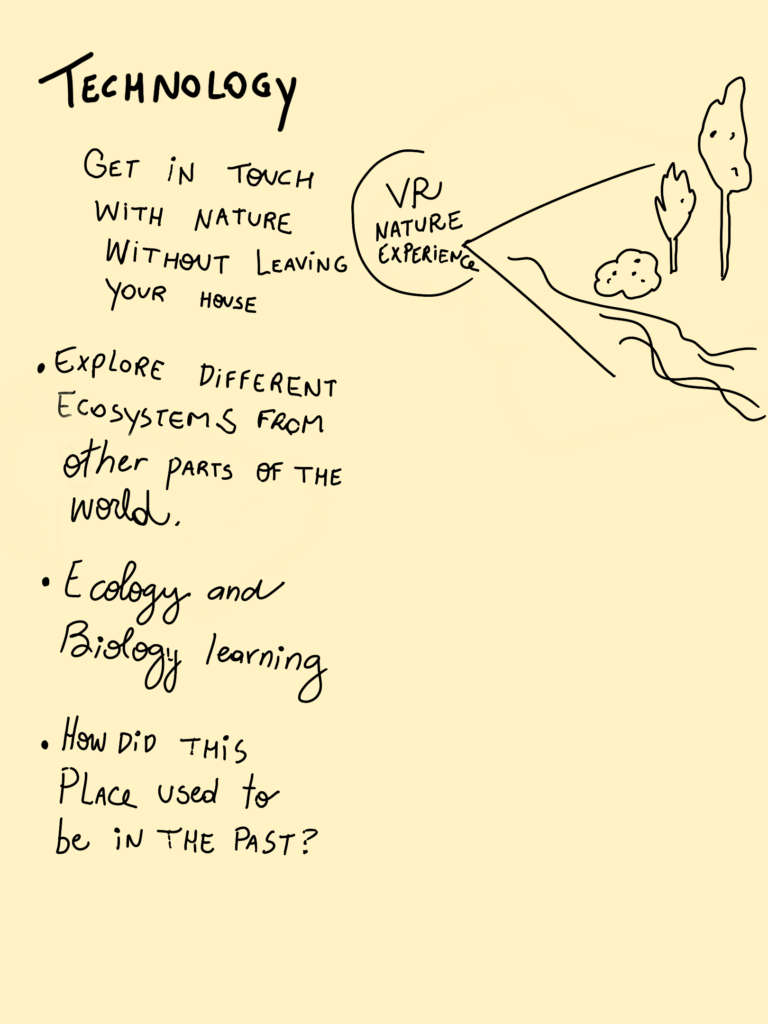 TECHNOLOGY
GET IN TOUCH
WITH NATURE
WITHOUT LEAVING
YOUR HOUSE
VR
NATURE
EXPERIENCE
• EXPLORE DIFFERENT
ECOSYSTEMS FROM
other PARTS OF THE
world.
• Ecology and
Biology learning
• HOW DID THIS
PLACE used to
be IN THE PAST?